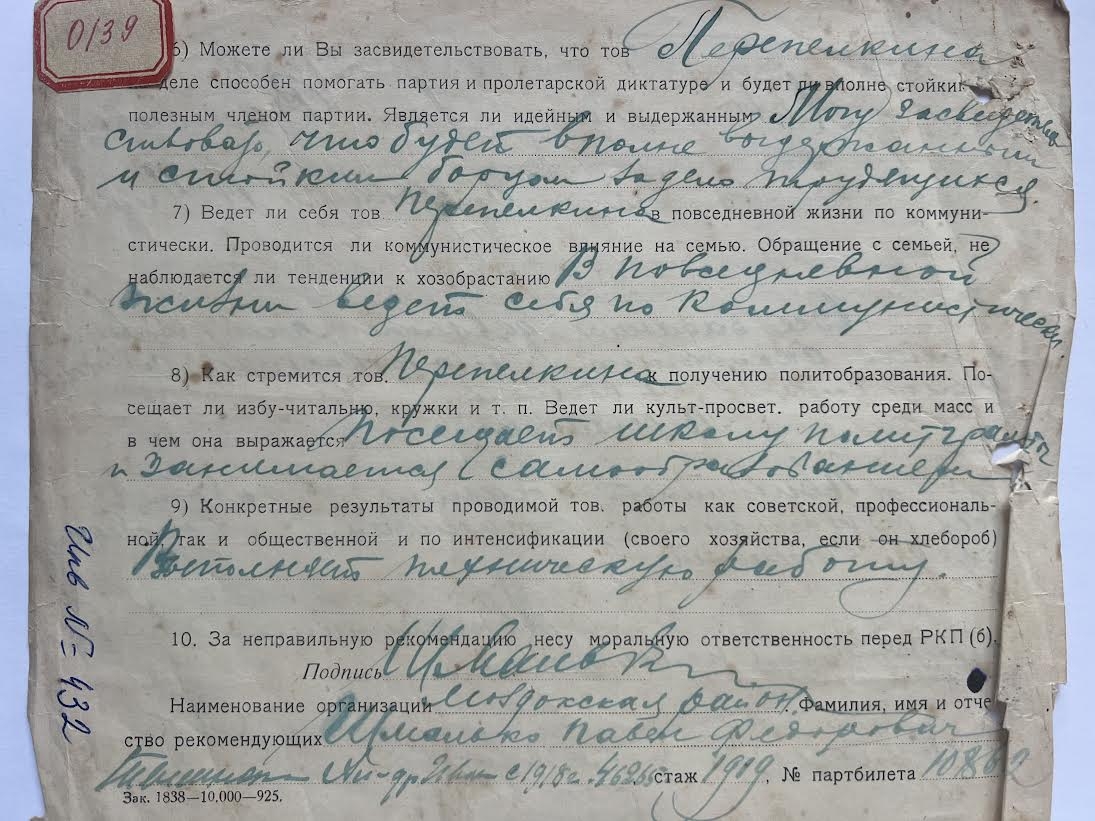 0139
6) Можете ли Вы засвидетельствовать, что тов Перепелкина
деле способен помогать партия и пролетарской диктатуре и будет ли вполне стойким
полезным членом партии. Является ли идейным и выдержанным Могу засвидетель
ствовать, что будет вполне выдержанным
и стойким борцом за дело трудящихся.
7) Ведет ли себя тов Перепелкина в повседневной жизни по коммуни-
стически. Проводится ли коммунистическое влияние на семью. Обращение с семьей, не
наблюдается ли тенденции к хозобрастанию В повседневной
жизни ведет себя по коммунистически.
8) Как стремится тов. Перепелкина к получению политобразования. По-
сещает ли избу-читальню, кружки и т. п. Ведет ли культ-просвет. работу среди масс и
в чем она выражается Посещает школу политграмоты
и занимается самообразованием
9) Конкретные результаты проводимой тов. работы как советской, профессиональ-
ной, так и общественной и по интенсификации (своего хозяйства, если он хлебороб)
Выполняет техническую работу.
10. За неправильную рекомендацию несу моральную ответственность перед РКП (б).
Подпись Шмалько
Наименование организации Моздокская район. Фамилия, имя и отче
ство рекомендующих Шмалько Павел Федорович
с 1918 г. стаж 1919, № партбилета
Зак. 1838—10,000—925.
Инв № 432